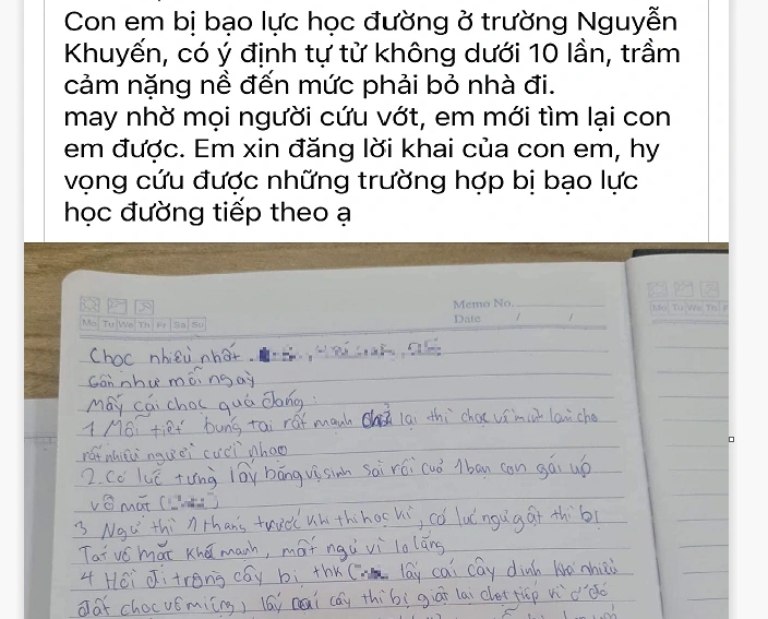 Con em bị bạo lực học đường ở trường Nguyễn
Khuyến, có ý định tự tử không dưới 10 lần, trầm
cảm nặng nề đến mức phải bỏ nhà đi.
may nhờ mọi người cứu vớt, em mới tìm lại con
em được. Em xin đăng lời khai của con em, hy
vọng cứu được những trường hợp bị bạo lực
học đường tiếp theo ạ
Memo No.
Mo Tu We Th Fr Sa Su
Date / /
Mo Tu We Th F
Chọc nhiều nhất
Gần như mỗi ngày
Mấy cái chọc quá đáng:
1 Mỗi tiết búng tai rất mạnh lại thì chọc vs mình làm cho
rất nhiều người cười nhạo
2. Có lúc từng lấy băng vệ sinh sài rồi của 1 bạn con gái úp
vô mặt
3 Ngủ thì 1 tháng trước khi thi học kì, có lúc ngủ gật thì bị
Tát vô mặt khá mạnh, mất ngủ vì lo lắng
4 Hồi đi trồng cây bị lấy cái cây dính nhiều
đất chọc vô miệng, lấy cái cây thì bị giật lại